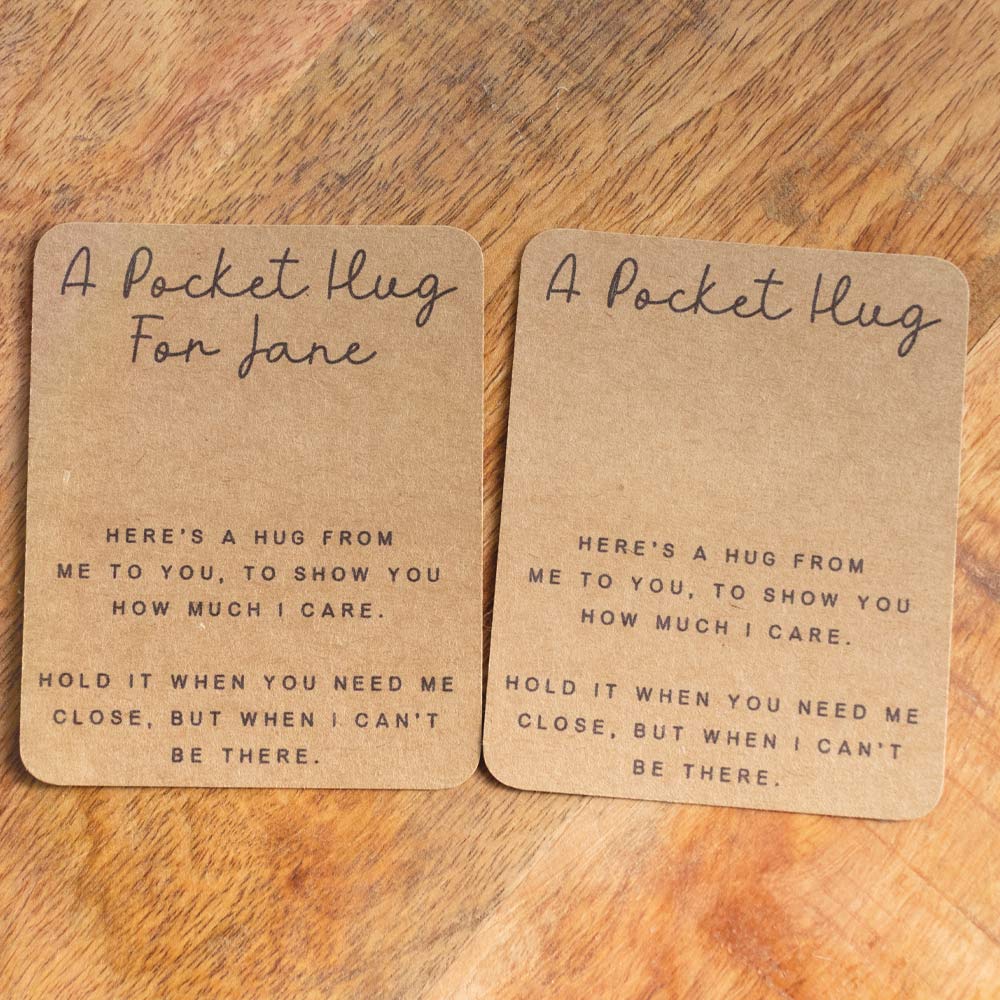 A Pocket Hug
For Jane
HERE'S A HUG FROM
ME TO YOU, TO SHOW YOU
HOW MUCH I CARE.
HOLD IT WHEN YOU NEED ME
CLOSE, BUT WHEN I CAN'T
BE THERE.
A Pocket Hug
HERE'S A HUG FROM
ME TO YOU, TO SHOW YOU
HOW MUCH I CARE.
HOLD IT WHEN YOU NEED ME
CLOSE, BUT WHEN I CAN'T
BE THERE.